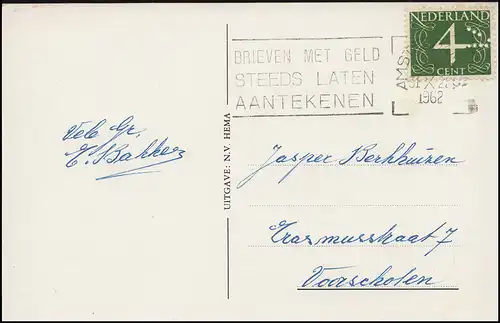 BRIEVEN MET GELD
STEEDS LATEN
AANTEKENEN
NEDERLAND
4
CENT
AMS
1962
Vele Gr.
E. Bakker
UITGAVE: N.V. HEMA
Jasper Berkhuizen
Erasmusstraat 7
Voorschoten